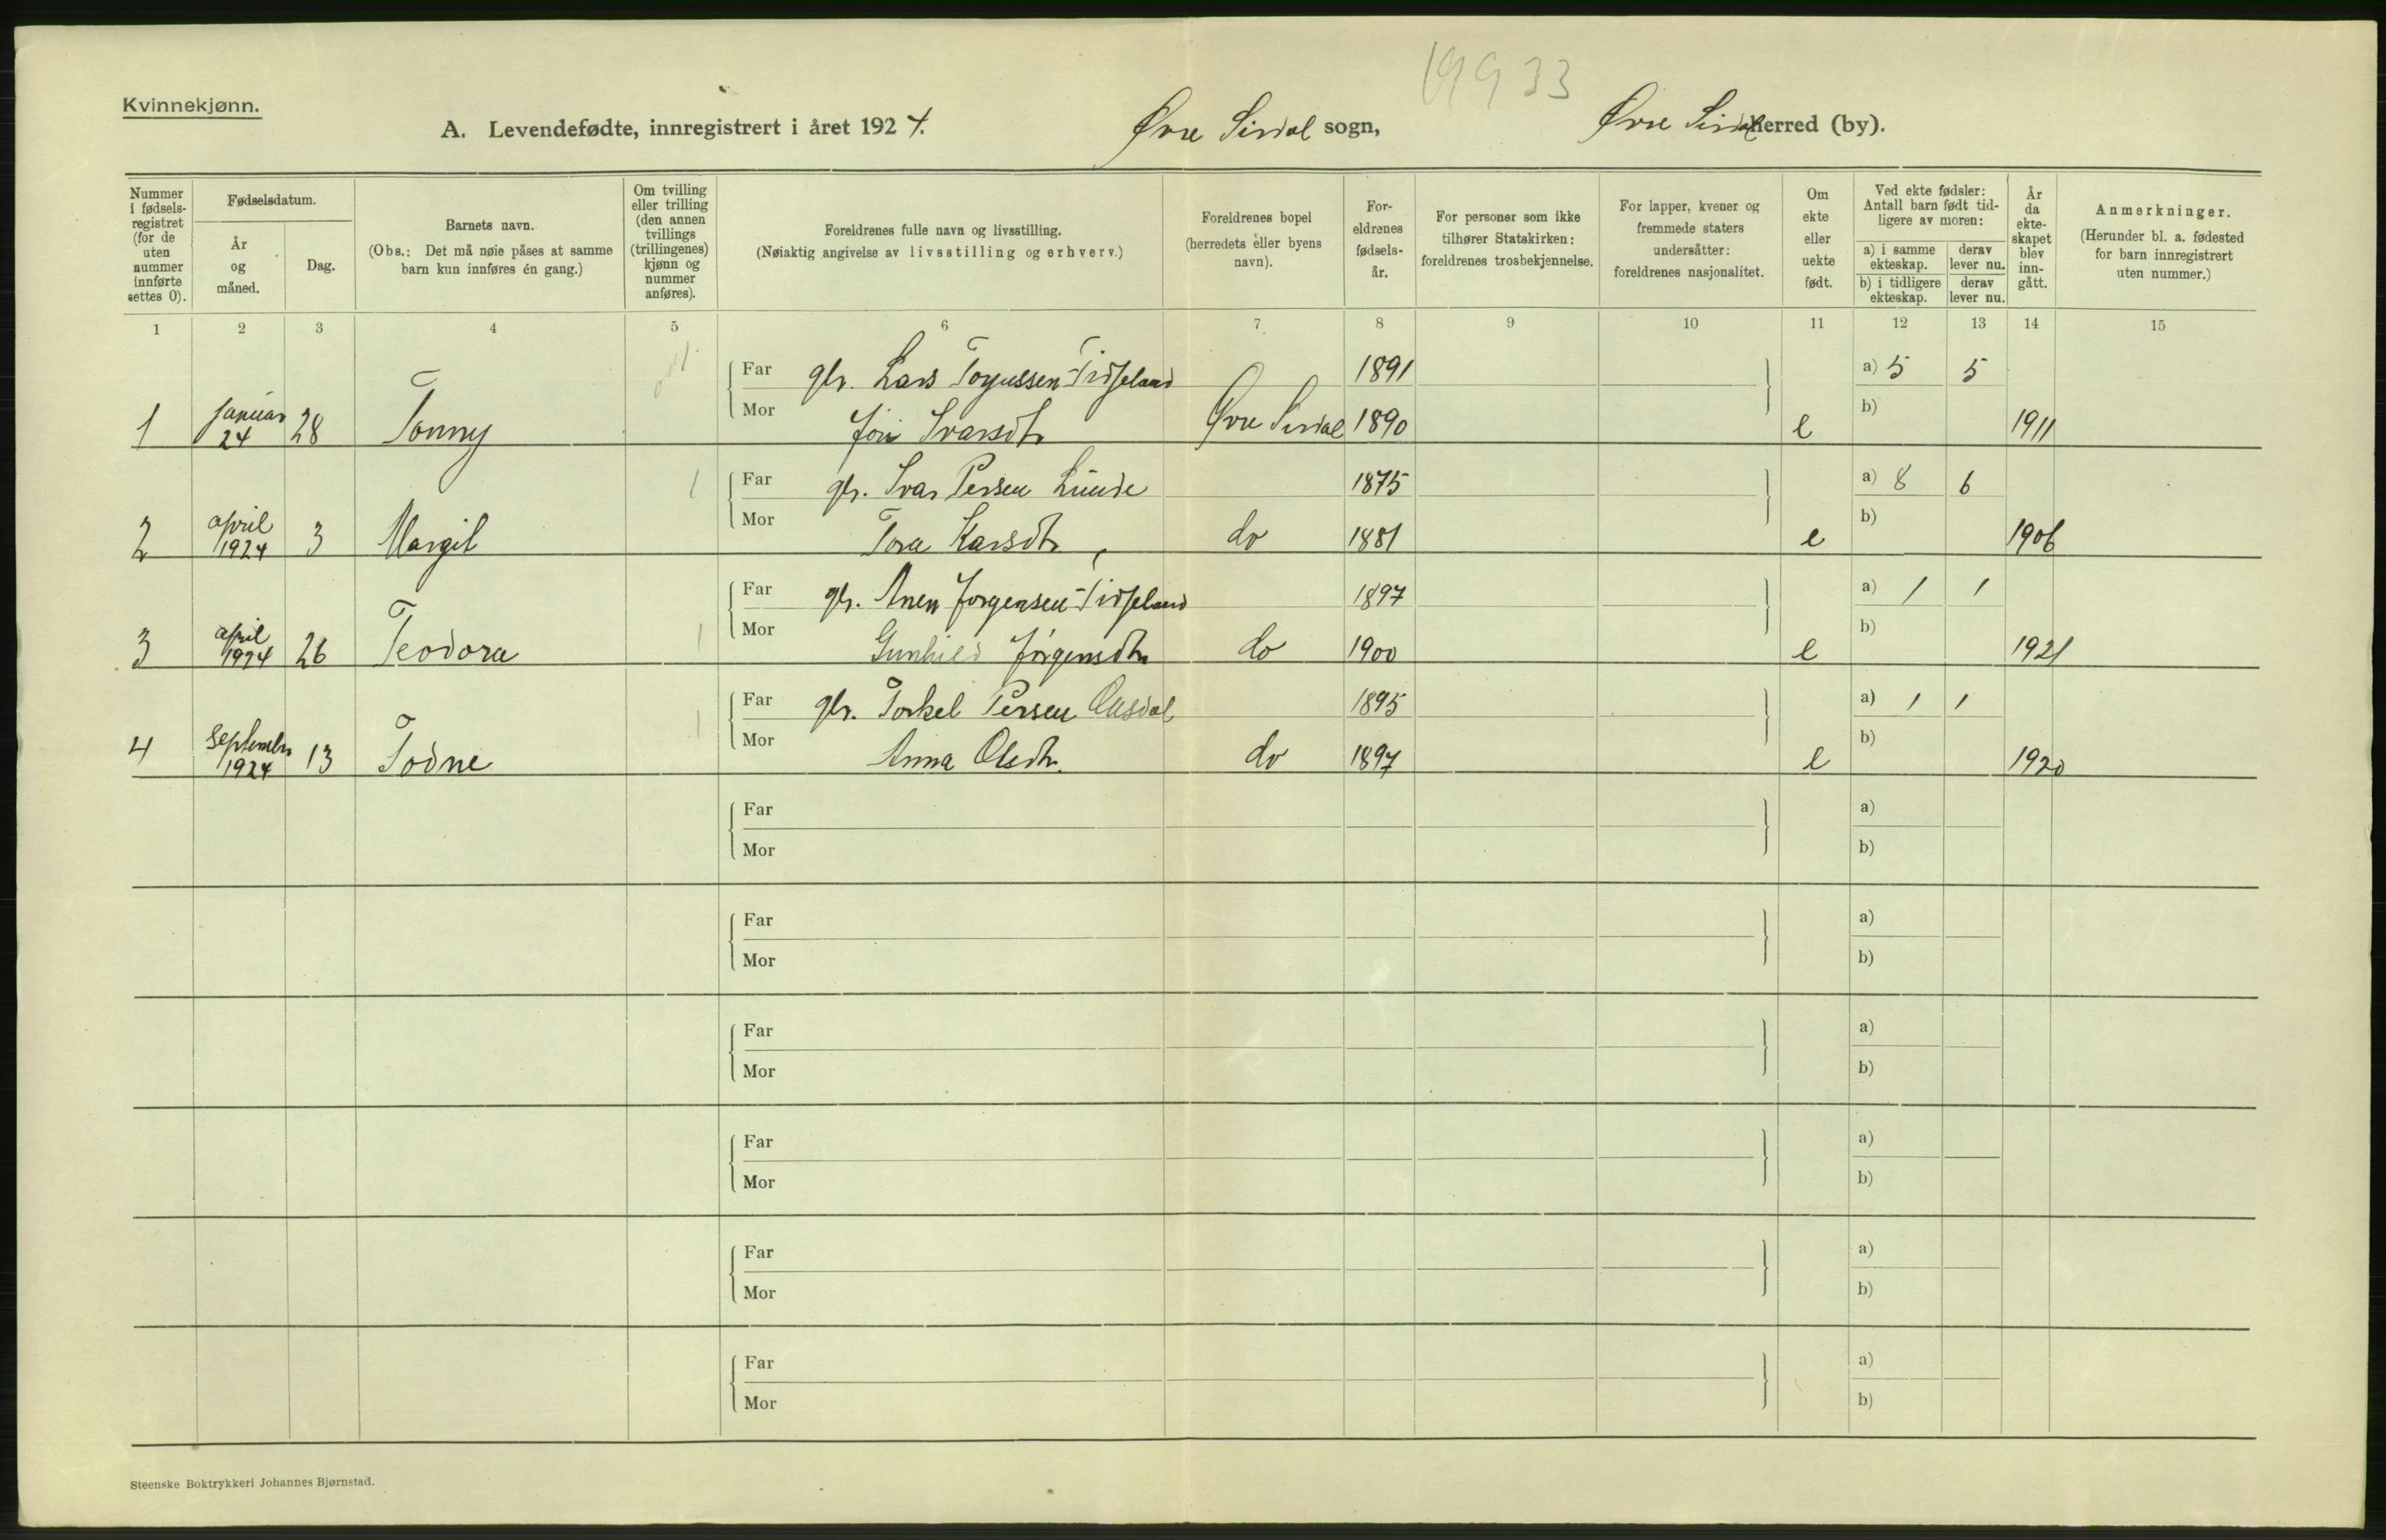 19933
Kvinnekjønn.
A. Levendefødte, innregistrert i året 1924. Øvre Sirdal sogn, Øvre Sirdal herred (by).
Nummer i fødsels-registret (for de uten nummer innførte settes 0).
Fødselsdatum.
År og måned.
Dag.
Barnets navn.
(Obs.: Det må nøie påses at samme barn kun innføres én gang.)
Om tvilling eller trilling (den annen tvillings (trillingenes) kjønn og nummer anføres).
Foreldrenes fulle navn og livsstilling.
(Nøiaktig angivelse av livsstilling og erhverv.)
Foreldrenes bopel (herredets eller byens navn).
For-eldrenes fødsels-år.
For personer som ikke tilhører Statskirken: foreldrenes trosbekjennelse.
For lapper, kvener og fremmede staters undersåtter: foreldrenes nasjonalitet.
Om ekte eller uekte født.
Ved ekte fødsler: Antall barn født tid-ligere av moren:
a) i samme ekteskap. derav lever nu.
b) i tidligere ekteskap. derav lever nu.
År da ekte-skapet blev inn-gått.
Anmerkninger.
(Herunder bl. a. fødested for barn innregistrert uten nummer.)
1 2 3 4 5 6 7 8 9 10 11 12 13 14 15
Far gbr. Lars Torjussen Tjdseland 1891 a) 5 5
1 Januar 24 28 Tonny Mor Jori Ivarsdtr Øvre Sirdal 1890 e b) 1911
1 Far gbr. Ivar Persen Lunde 1875 a) 8 6
2 april 1924 3 Margit Mor Tora Larsdtr do 1881 e b) 1906
Far gbr. Anen Jørgensen 1897 a) 1 1
3 april 1924 26 Teodora 1 Mor Gunhild Jørgensdtr do 1900 e b) 1921
Far gbr. Torkel Persen Ousdal 1895 a) 1 1
4 September 1924 13 Todne 1 Mor Anna Olsdtr. do 1897 e b) 1920
Far a)
Mor b)
Far a)
Mor b)
Far a)
Mor b)
Far a)
Mor b)
Far a)
Mor b)
Far a)
Mor b)
Steenske Boktrykkeri Johannes Bjørnstad.